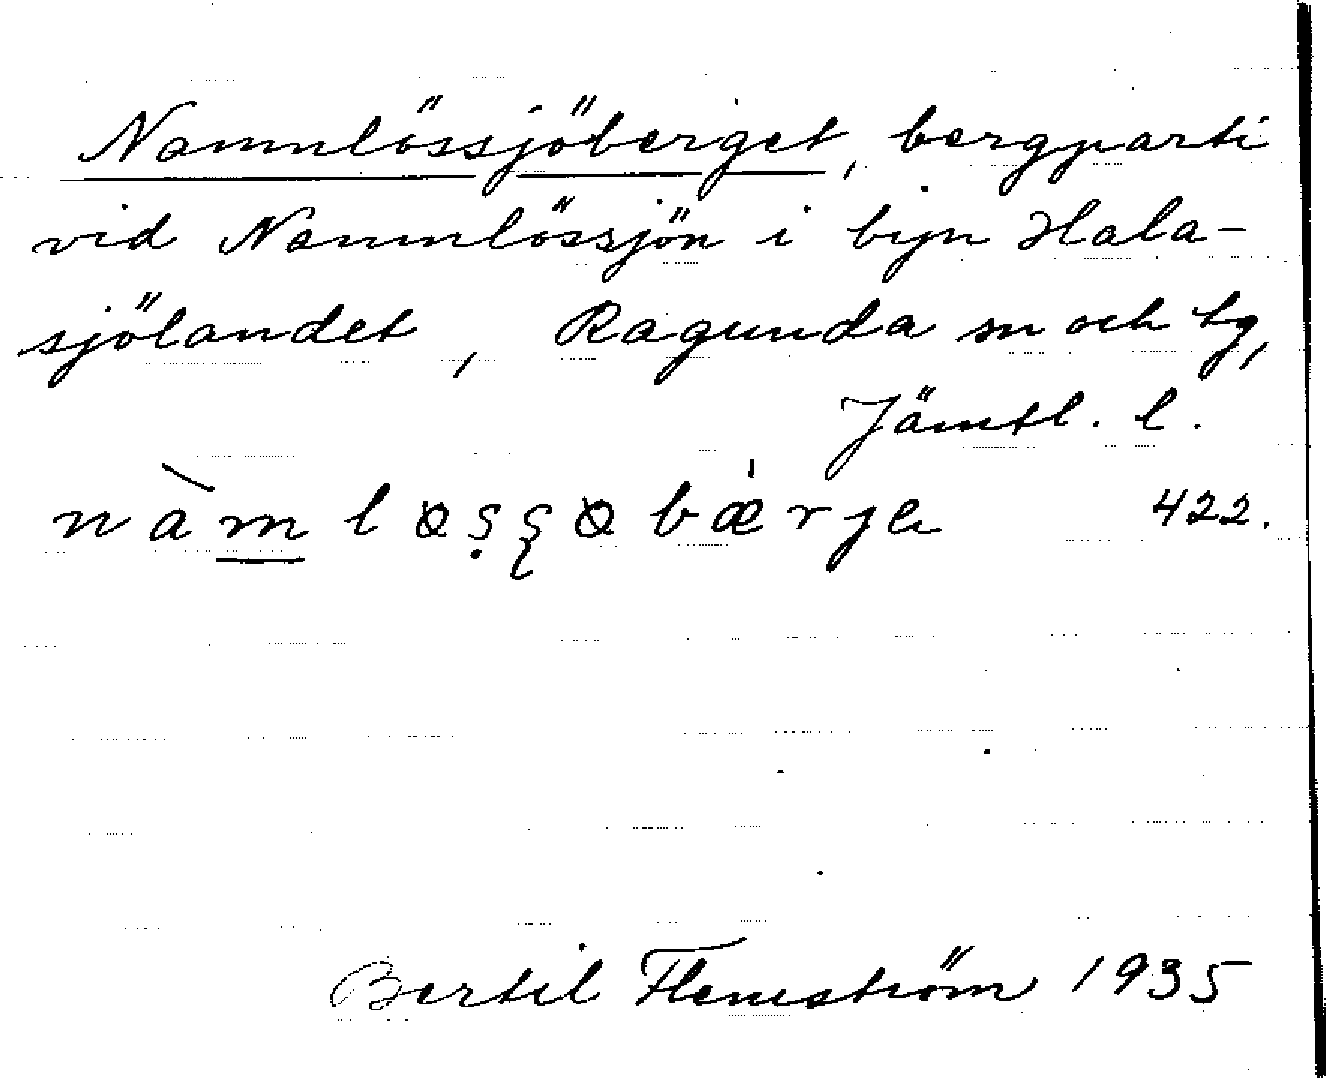 Namnlössjöberget, bergparti
vid Namnlössjön i byn Hala-
sjölandet, Ragunda sn och tg,
Jämtl. l.
nàm løsʂøbærje 422.
Bertil Flemström 1935